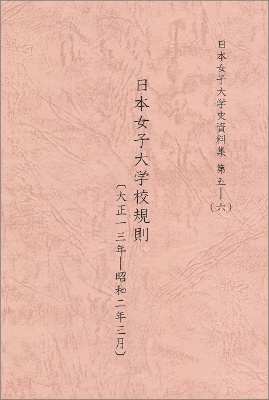 日本女子大学史資料集 第五―(六)
日本女子大学校規則
〔大正一三年―昭和二年三月〕